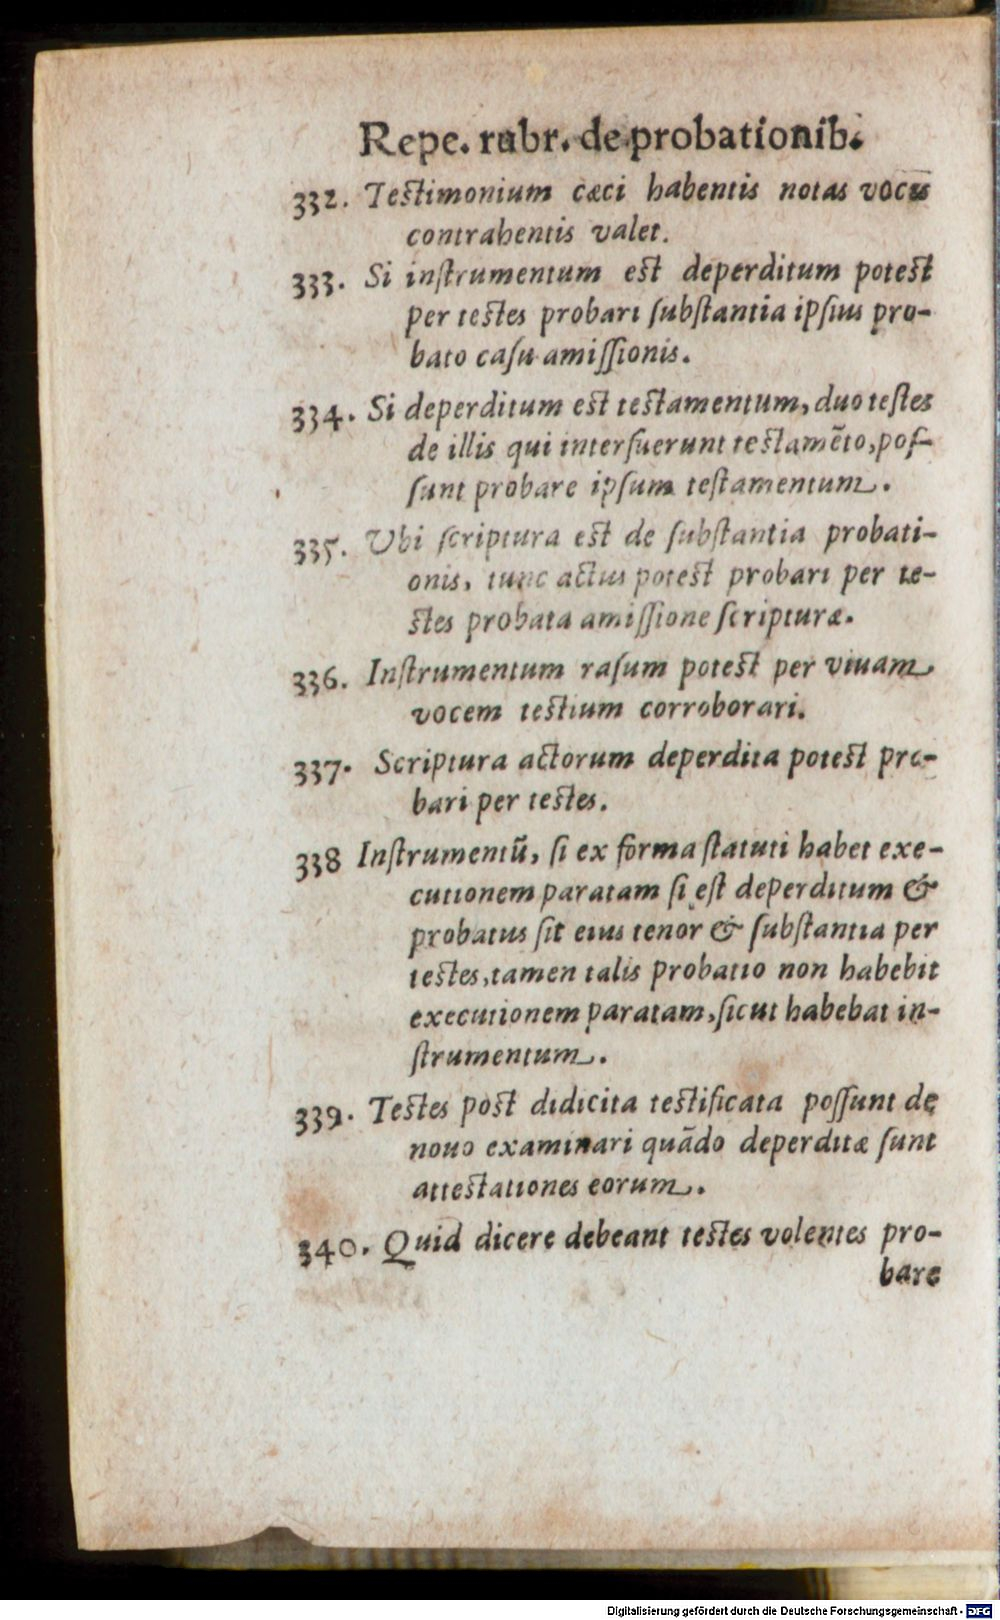 Repe. rubr. de probationib.
332. Testimonium cæci habentis notas vocis
contrahentis valet.
333. Si inſtrumentum est deperditum potest
per testes probari ſubſtantia ipſius pro-
bato caſu amiſſionis.
334. Si deperditum est testamentum, duo teſtes
de illis qui interfuerunt testamẽto, poſ-
ſunt probare ipſum teſtamentum.
335. Vbi ſcriptura est de ſubſtantia probati-
onis, tunc actus potest probari per te-
stes probata amiſſione ſcripturæ.
336. Inſtrumentum raſum potest per viuam
vocem testium corroborari.
337. Scriptura actorum deperdita potest pro-
bari per testes.
338 Inſtrumentũ, ſi ex forma ſtatuti habet exe-
cutionem paratam ſi eſt deperditum &
probatus ſit eius tenor & ſubſtantia per
testes, tamen talis probatio non habebit
executionem paratam, ſicut habebat in-
ſtrumentum.
339. Testes post didicita testificata poſſunt de
nouo examinari quãdo deperditæ ſunt
attestationes eorum.
340. Quid dicere debeant testes volentes pro-
bare
Digitalisierung gefördert durch die Deutsche Forschungsgemeinschaft - DFG